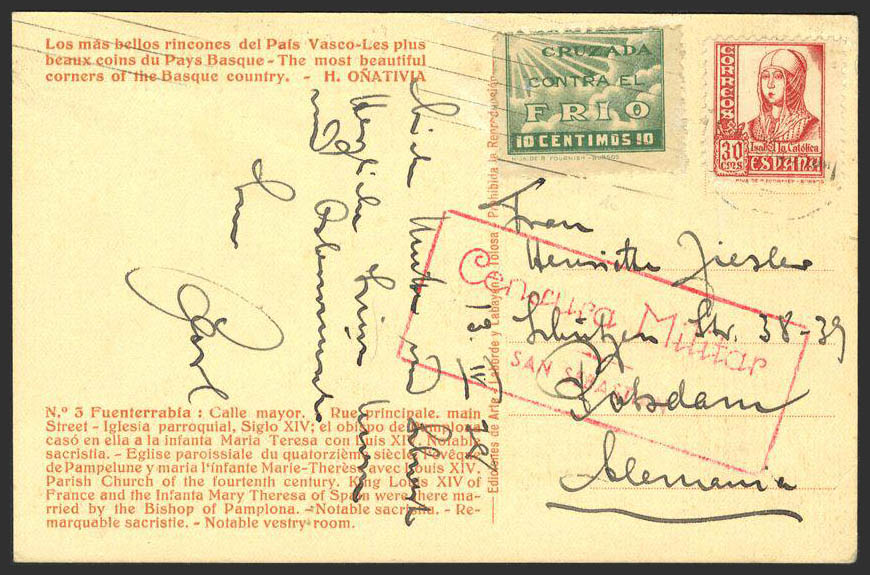 Los más bellos rincones del País Vasco-Les plus
beaux coins du Pays Basque - The most beautiful
corners of the Basque country. - H. OÑATIVIA
CRUZADA
CONTRA EL
FRIO
10 CENTIMOS 10
HIJA DE B. FOURNIER - BURGOS
CORREOS
30 CTMS
Isabel la Católica
ESPAÑA
HIJA DE B. FOURNIER - BURGOS
Ediciones de Arte - Laborde y Labayen - Tolosa - Prohibida la Reproducción
Frau
Henriette Ziesler
Schützen Str. 38-39
Potsdam
Alemania
Censura Militar
SAN SEBASTIAN
19. IV 38
N.º 3 Fuenterrabía : Calle mayor. - Rue principale. main
Street - Iglesia parroquial, Siglo XIV; el obispo de Pamplona
casó en ella a la infanta María Teresa con Luis XIV. Notable
sacristía. - Eglise paroissiale du quatorzième siècle; l'évêque
de Pampelune y maria l'infante Marie-Thérèse avec Louis XIV.
Parish Church of the fourteenth century. King Louis XIV of
France and the Infanta Mary Theresa of Spain were there ma-
rried by the Bishop of Pamplona. - Notable sacristia. - Re-
marquable sacristie. - Notable vestry-room.